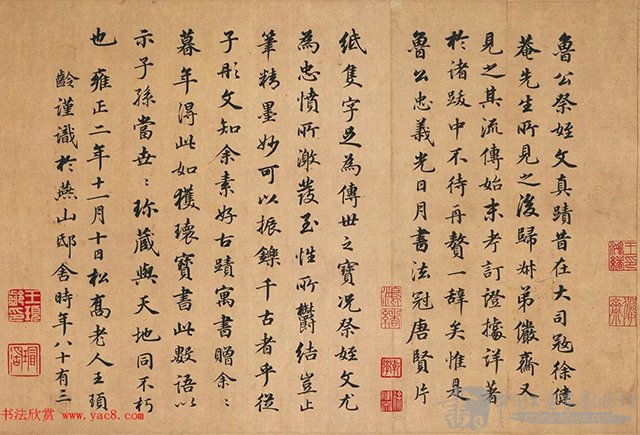 魯公祭姪文真蹟昔在大司寇徐健
菴先生所見之後歸叔弟儼齋又
見之其流傳始末考訂證據詳著
於諸跋中不待再贅一辭矣惟是
魯公忠義光日月書法冠唐賢片
紙隻字足為傳世之寶況祭姪文尤
為忠憤所激發至性所欝結豈止
筆精墨妙可以振鑠千古者乎從
子彤文知余素好古蹟寓書贈余〻
暮年得此如獲瓌寶書此數語以
示子孫當世〻珍藏與天地同不朽
也雍正二年十一月十日松喬老人王頊
齡謹識於燕山邸舍時年八十有三
书法欣赏
www.yac8.com